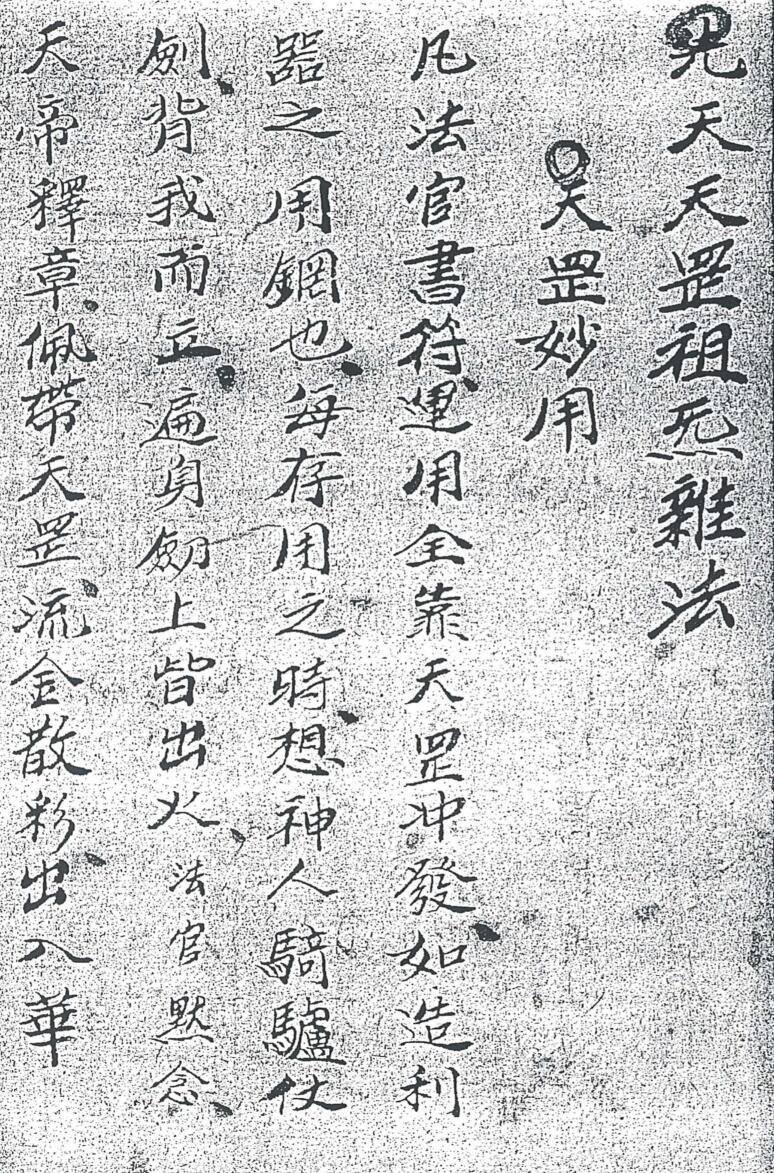 先天天罡祖炁雜法
天罡妙用
凡法官書符運用全靠天罡冲發如造利
器之用鋼也每存用之時想神人騎驢仗
劍背我而立遍身劒上皆出火法官默念
天帝釋章佩帶天罡流金散彩出入華